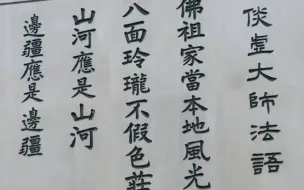 倓虛大師法語
佛祖家當本地風光
八面玲瓏不假色莊
山河應是山河
邊疆應是邊疆